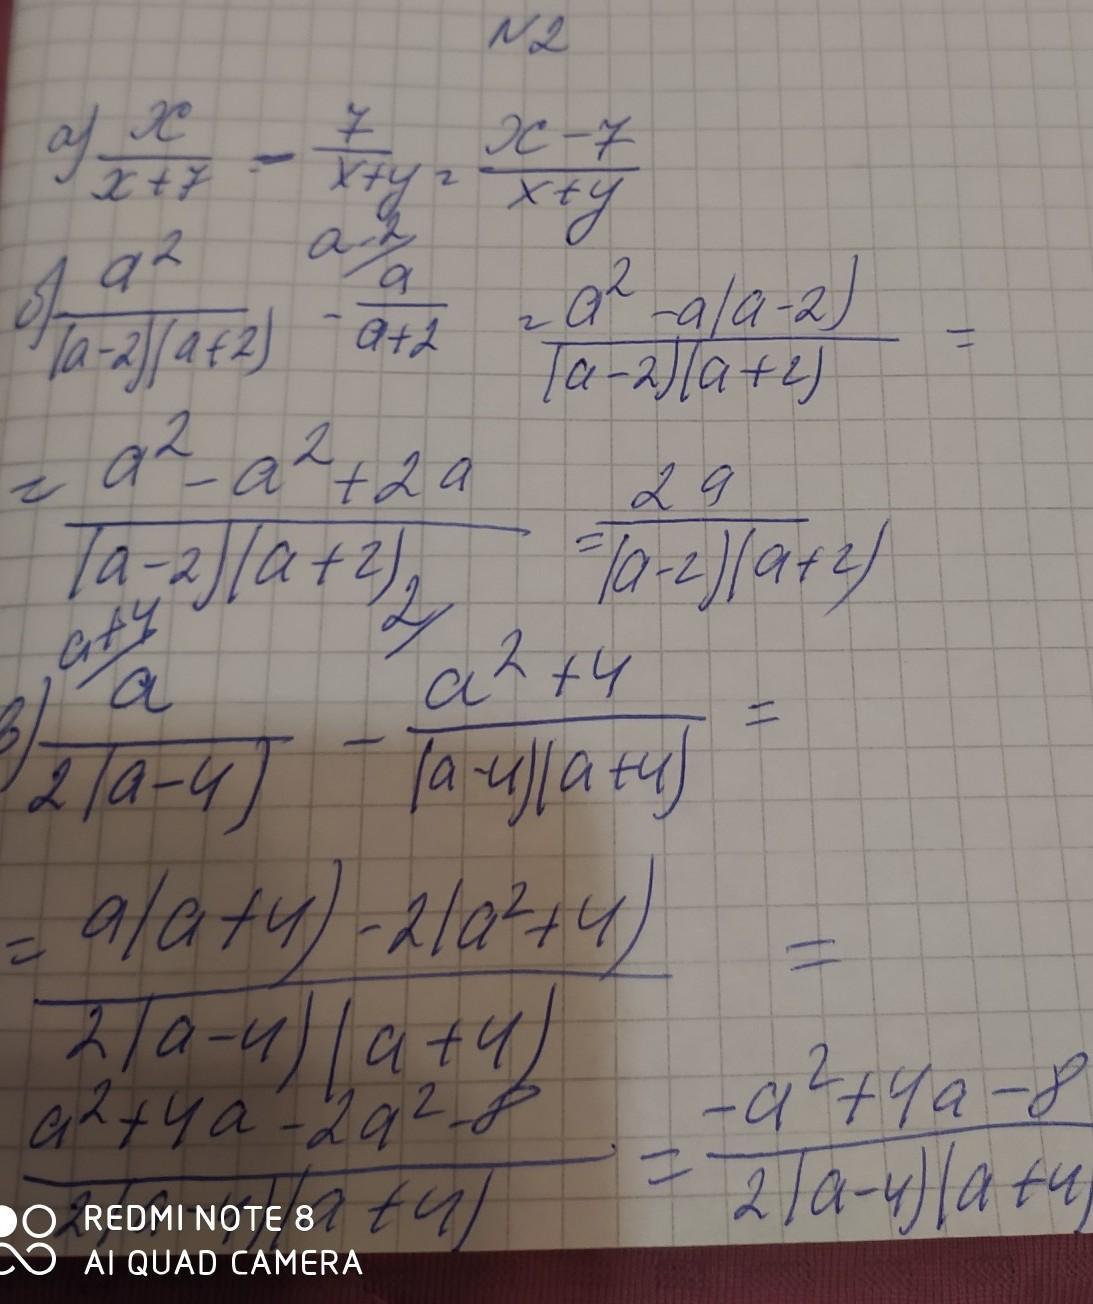 N2
а) x/(x+7) - 7/(x+y) = (x-7)/(x+y)
б) a²/((a-2)(a+2)) - a^(a-2/)/(a+2) = (a²-a(a-2))/((a-2)(a+2)) =
= (a²-a²+2a)/((a-2)(a+2)) = 2a/((a-2)(a+2))
в) a^(a+4/)/(2(a-4)) - (a²+4)^(2/)/((a-4)(a+4)) =
= (a(a+4)-2(a²+4))/(2(a-4)(a+4)) =
(a²+4a-2a²-8)/(2(a-4)(a+4)) = (-a²+4a-8)/(2(a-4)(a+4)
REDMI NOTE 8
AI QUAD CAMERA